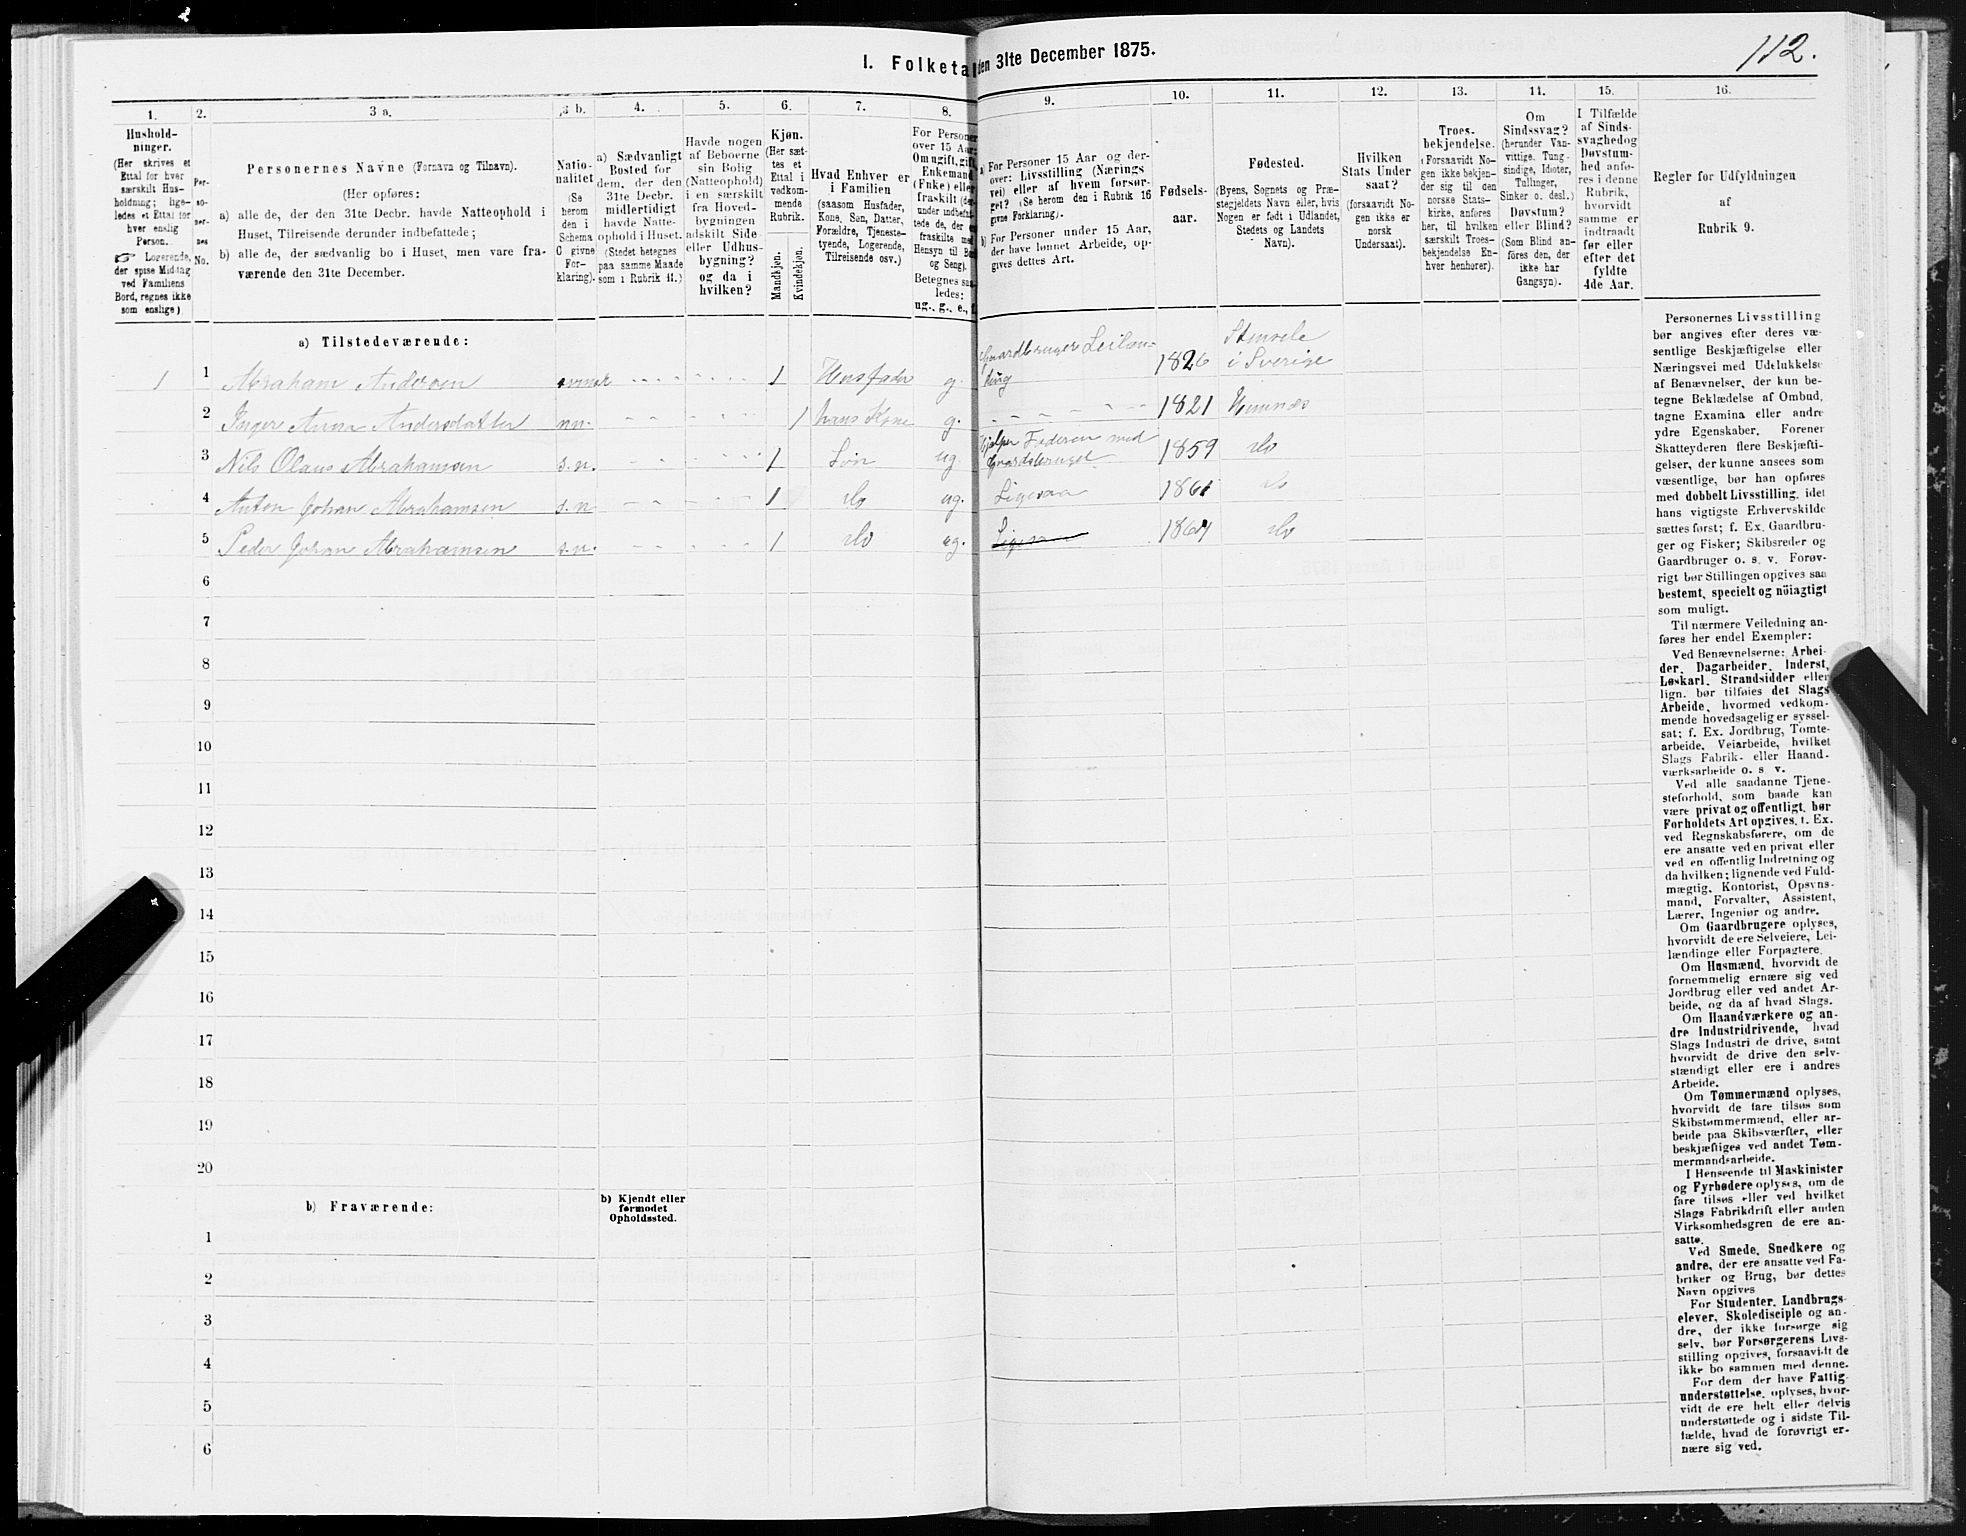 I. Folketal den 31te December 1875.
112.
1.
Hushold-
ninger.
(Her skrives et
Ettal for hver
særskilt Hus-
holdning; lige-
ledes et Ettal for
hver enslig
Person.
☞ Logerende,
der spise Middag
ved Familiens
Bord, regnes ikke
som enslige)
2.
Per-
so-
ner-
nes
No.
3 a.
Personernes Navne (Fornavn og Tilnavn).
(Her opføres:
a) alle de, der den 31te Decbr. havde Natteophold i
Huset, Tilreisende derunder indbefattede;
b) alle de, der sædvanlig bo i Huset, men vare fra-
værende den 31te December.
3 b.
Natio-
nalitet
(Se
herom
den i
Schema
C givne
For-
klaring).
4.
a) Sædvanligt
Bosted for
dem, der den
31te Decbr.
midlertidigt
havde Natte-
ophold i Huset.
(Stedet betegnes
paa samme Maade
som i Rubrik 11.)
5.
Havde nogen
af Beboerne
sin Bolig
(Natteophold)
i en særskilt
fra Hoved-
bygningen
adskilt Side-
eller Udhus-
bygning?
og da i
hvilken?
6.
Kjøn.
(Her sæt-
tes et
Ettal i
vedkom-
mende
Rubrik.
Mandkjøn.
Kvindekjøn.
7.
Hvad Enhver er
i Familien
(saasom Husfader,
Kone, Søn, Datter,
Forældre, Tjeneste-
tyende, Logerende,
Tilreisende osv.)
8.
For Personer
over 15 Aar:
Om ugift, gift,
Enkemand
(Enke) eller
fraskilt
Hensyn til Bord
og Seng).
Betegnes saa-
ledes:
ug., g., e., f.
9.
a) For Personer 15 Aar og der-
over: Livsstilling (Nærings
vei) eller af hvem forsør-
get? (Se herom den i Rubrik 16
givne Forklaring).
b) For Personer under 15 Aar,
der have lønnet Arbeide, op-
gives dettes Art.
10.
Fødsels-
aar.
11.
Fødested.
(Byens, Sognets og Præ-
stegjeldets Navn eller, hvis
Nogen er født i Udlandet,
Stedets og Landets
Navn).
12.
Hvilken
Stats Under
saat?
(forsaavidt No-
gen ikke er
norsk
Undersaat).
13.
Troes-
bekjendelse.
(Forsaavidt No-
gen ikke bekjen-
der sig til den
norske Stats-
kirke, anføres
her, til hvilken
særskilt Troes-
bekjendelse En-
hver henhører).
14.
Om
Sindssvag?
(herunder Van-
vittige, Tung-
sindige, Idioter,
Tullinger,
Sinker o. desl.)
Døvstum?
eller Blind?
(Som Blind an-
føres den, der
ikke har
Gangsyn).
15.
I Tilfælde
af Sinds-
svaghed og
Døvstum-
hed anfø-
res i denne
Rubrik,
hvorvidt
samme er
indtraadt
før eller
efter det
fyldte
4de Aar.
16.
Regler for Udfyldningen
af
Rubrik 9.
a) Tilstedeværende:
1 1 Abraham Andersen svensk 1 Husfader g. Gaardbruger Leilæn-
ding 1826 Stensele
i Sverige
2 Inger Anna Andersdatter nn. 1 hans Kone g. 1821 Hemnæs
3 Nils Olaus Abrahamsen s.n. 1 Søn ug. Hjælper Faderen med
Gaardsbruget 1859 do
4 Anton Johan Abrahamsen s.n 1 do ug. Ligesaa 1861 do
5 Peder Johan Abrahamsen s.n. 1 do ug. Ligesaa 1864 do
6
7
8
9
10
11
12
13
14
15
16
17
18
19
20
b) Fraværende:
b) Kjendt eller
formodet
Opholdssted.
1
2
3
4
5
6
Personernes Livsstilling
bør angives efter deres væ-
sentlige Beskjæftigelse eller
Næringsvei med Udelukkelse
af Benævnelser, der kun be-
tegne Beklædelse af Ombud,
tagne Examina eller andre
ydre Egenskaber. Forener
Skatteyderen flere Beskjæfti-
gelser, der kunne ansees som
væsentlige, bør han opføres
med dobbelt Livsstilling, idet
hans vigtigste Erhvervskilde
sættes først; f. Ex. Gaardbru-
ger og Fisker; Skibsreder og
Gaardbruger o. s. v. Forøv-
rigt bør Stillingen opgives saa
bestemt, specielt og nöiagtigt
som muligt.
Til nærmere Veiledning an-
føres her endel Exempler:
Ved Benævnelserne: Arbei-
der, Dagarbeider, Inderst,
Løskarl, Strandsidder eller
lign. bør tilføies det Slags
Arbeide, hvormed vedkom-
mende hovedsagelig er syssel-
sat; f. Ex. Jordbrug, Tomte-
arbeide, Veiarbeide, hvilket
Slags Fabrik- eller Haand-
værksarbeide o. s. v.
Ved alle saadanne Tjene-
steforhold, som baade kan
være privat og offentligt, bør
Forholdets Art opgives, f. Ex.
ved Regnskabsførere, om de
ere ansatte ved en privat eller
ved en offentlig Indretning og
da hvilken; lignende ved Fuld-
mægtig, Kontorist, Opsyns-
mand, Forvalter, Assistent,
Lærer, Ingeniør og andre.
Om Gaardbrugere oplyses,
hvorvidt de ere Selveiere, Lei-
lændinge eller Forpagtere.
Om Husmænd, hvorvidt de
fornemmelig ernære sig ved
Jordbrug eller ved andet Ar-
beide, og da af hvad Slags.
Om Haandværkere og an-
dre Industridrivende, hvad
Slags Industri de drive, samt
hvorvidt de drive den selv-
stændigt eller ere i andres
Arbeide.
Om Tømmermænd oplyses,
hvorvidt de fare tilsøs som
Skibstømmermænd, eller ar-
beide paa Skibsværfter, eller
beskjæftiges ved andet Tøm-
mermandsarbeide.
I Henseende til Maskinister
og Fyrbødere oplyses, om de
fare tilsøs eller ved hvilket
Slags Fabrikdrift eller anden
Virksomhedsgren de ere an-
satte.
Ved Smede, Snedkere og
andre, der ere ansatte ved Fa-
briker og Brug, bør dettes
Navn opgives
For Studenter, Landbrugs-
elever, Skoledisciple og an-
dre, der ikke forsørge sig
selv, bør Forsørgerens Livs-
stilling opgives, forsaavidt de
ikke bo sammen med denne.
For dem der have Fattig-
understøttelse, oplyses, hvor-
vidt de ere helt eller delvis
understøttede og i sidste Til-
fælde, hvad de forøvrigt er-
nære sig ved.